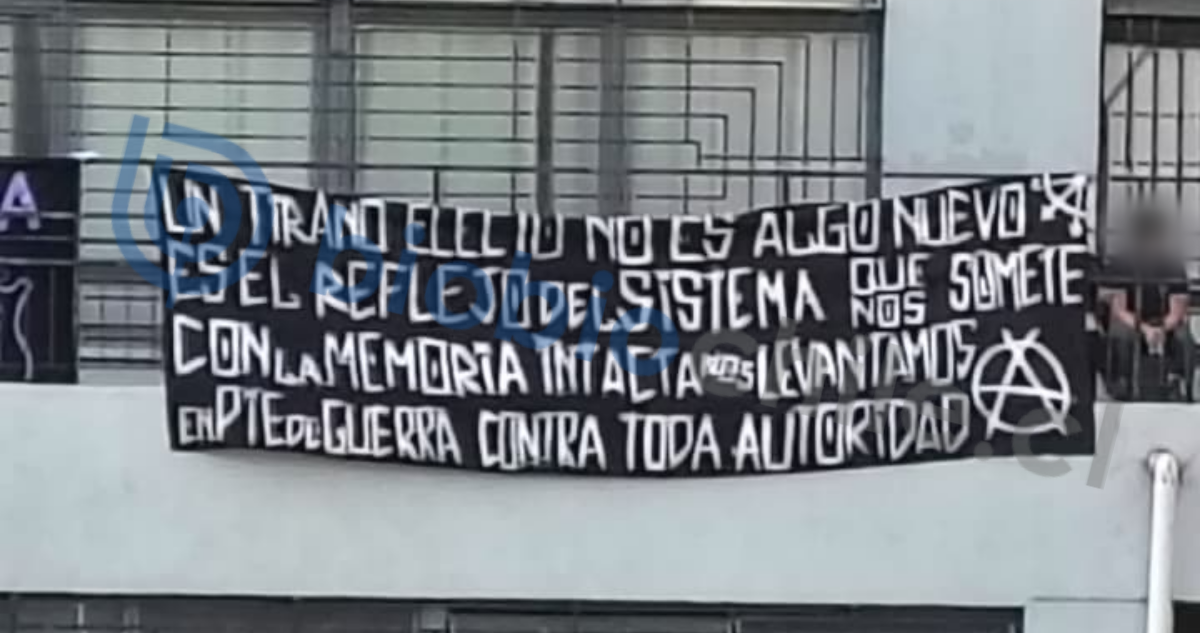 A
UN TIRANO ELECTO NO ES ALGO NUEVO
ES EL REFLEJO DEL SISTEMA QUE NOS SOMETE
CON LA MEMORIA INTACTA NOS LEVANTAMOS
EN PTE DE GUERRA CONTRA TODA AUTORIDAD
biobiochile.cl